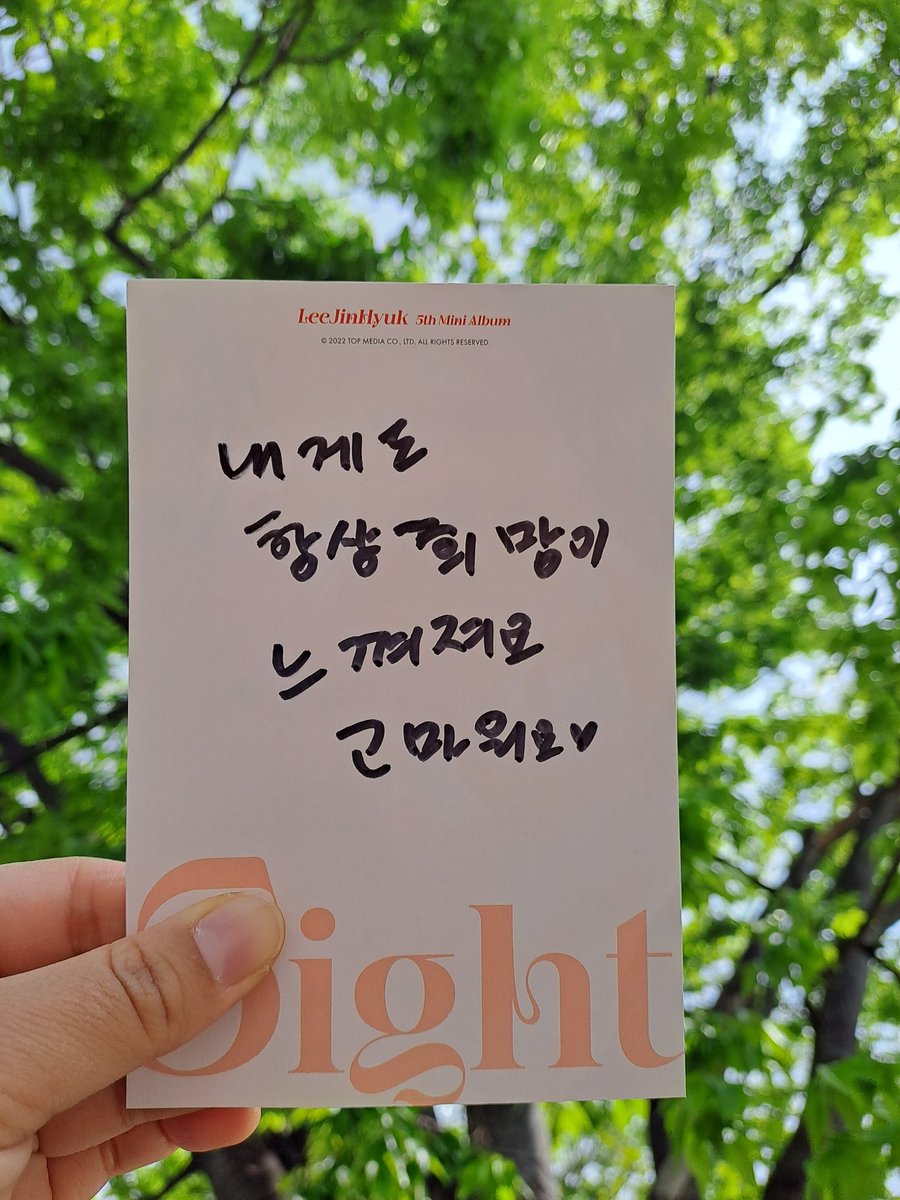 LeeJinHyuk 5th Mini Album
© 2022 TOP MEDIA CO., LTD. ALL RIGHTS RESERVED.
내게도
항상 희망이
느껴져요
고마워요♥
Sight